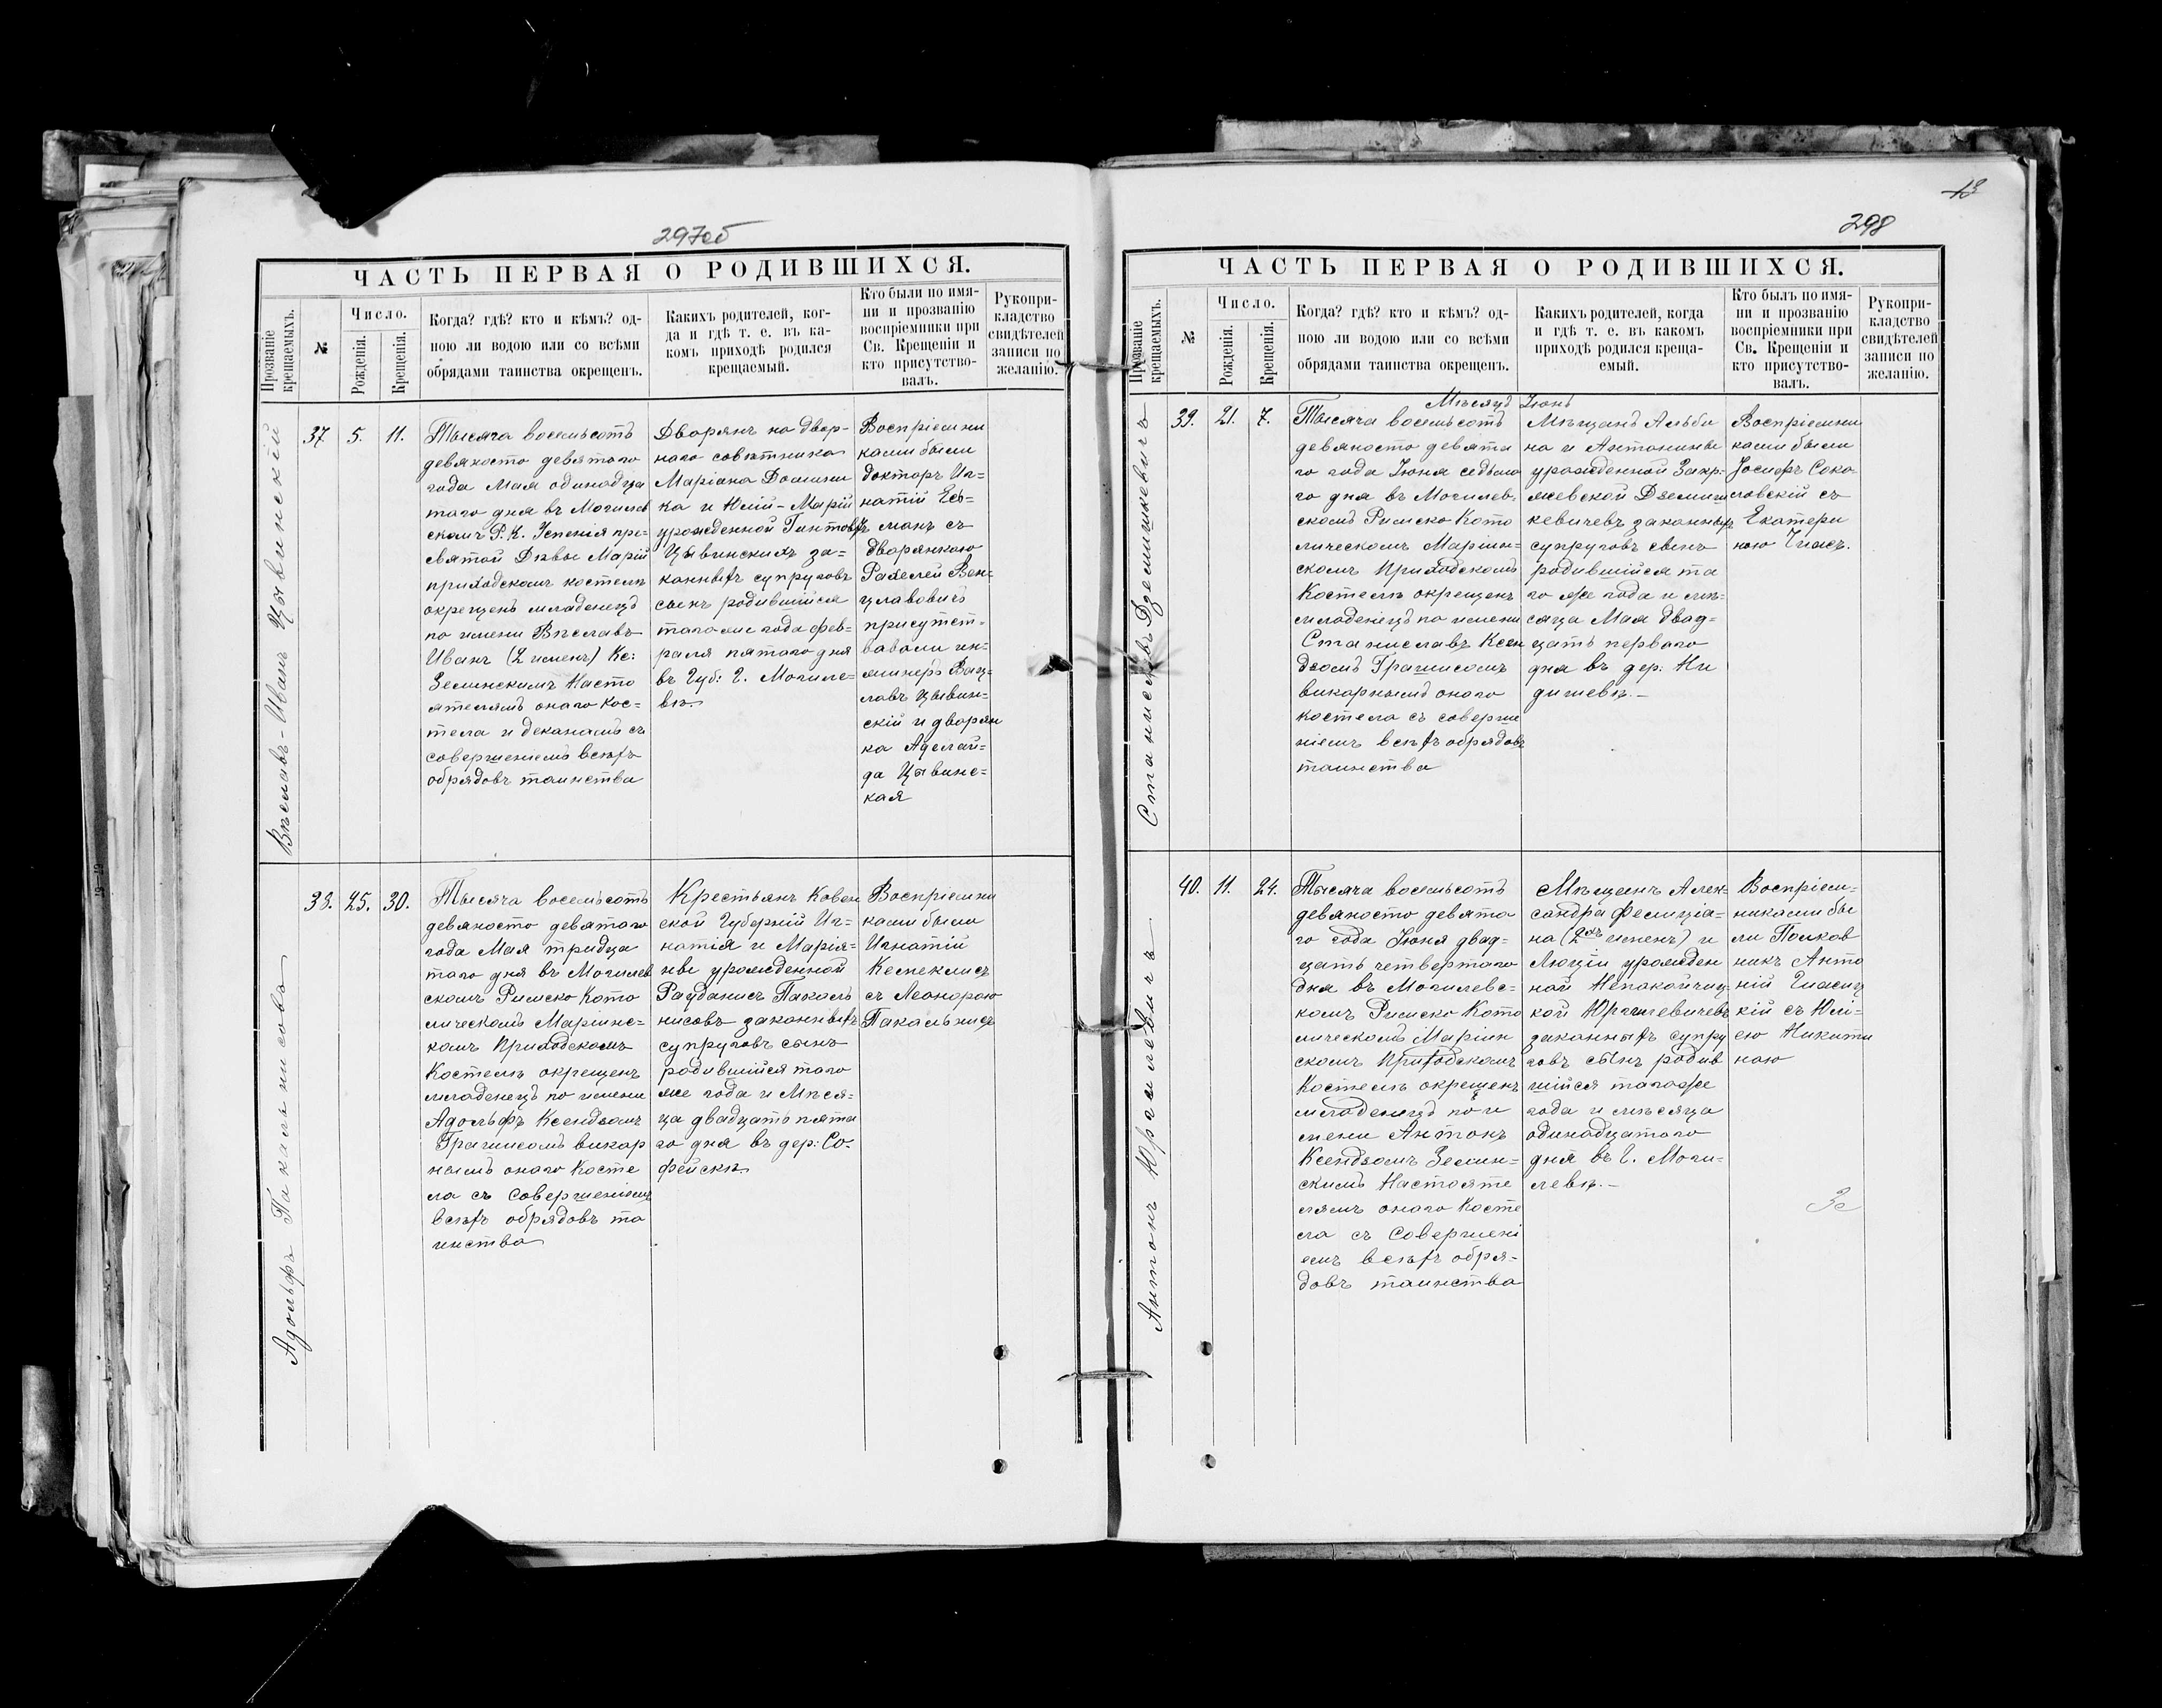 297об
ЧАСТЬ ПЕРВАЯ О РОДИВШИХСЯ.
Прозваніе крещаемыхъ.
№
Число.
Рожденія.
Крещенія.
Когда? гдѣ? кто и кѣмъ? од-
ною ли водою или со всѣми
обрядами таинства окрещенъ.
Какихъ родителей, ког-
да и гдѣ т. е. въ ка-
комъ приходѣ родился
крещаемый.
Кто были по имя-
ни и прозванію
воспріемники при
Св. Крещеніи и
кто присутство-
валъ.
Рукопри-
кладство
свидѣтелей
записи по
желанію.
Вѣславъ-Иванъ Цывинскій
37
5.
11.
Тысяча восемьсотъ
девяносто девятаго
года Мая одинадца
таго дня въ Могилев
скомъ Р. К. Успенія пре-
святой Дѣвы Маріи
приходскомъ костелѣ
окрещенъ младенецъ
по имени Вѣславъ
Иванъ (2 именъ) Кс:
Земинскимъ Насто
ятелемъ онаго кос-
тела и деканомъ съ
совершеніемъ всѣхъ
обрядовъ таинства
Дворянъ на двор-
наго совѣтника
Маріана Домини
ка и Юліи-Маріи
урожденной Гинтовтъ
Цывинскихъ за-
конныхъ супруговъ
сынъ родившійся
тогоже года фев-
раля пятаго дня
въ Губ: г. Могиле-
вѣ.
Воспріемни
ками были
докторъ Иг-
натій
манъ съ
дворянкою
Рахелей Вен-
цлавовичъ
присутст-
вовали ин-
жинеръ Вац-
лавъ Цывин-
скій и дворян
ка Аделаи-
да Цывинс-
кая
Адольфъ Пакальнисовъ
38.
25.
30.
Тысяча восемьсотъ
девяносто девятаго
года Мая тридца
таго дня въ Могилев
скомъ Римско Като
лическомъ Маріинс-
комъ Приходскомъ
Костелѣ окрещенъ
младенецъ по имени
Адольфъ Ксендзомъ
Грагисомъ викар
нымъ онаго Косте
ла съ совершеніемъ
всѣхъ обрядовъ та
инства
Крестьянъ Ковен
ской Губерніи Иг-
натія и Марія-
нны урожденной
Рауданисъ Пакаль
нисовъ законныхъ
супруговъ сынъ
родившійся того
же года и Мѣся-
ца двадцать пята
го дня въ дер: Со-
фейскѣ
Воспріемни
ками были
Игнатій
Кемеклисъ
съ Леонорою
Пакальнисъ
13
298
ЧАСТЬ ПЕРВАЯ О РОДИВШИХСЯ.
Прозваніе крещаемыхъ.
№
Число.
Рожденія.
Крещенія.
Когда? гдѣ? кто и кѣмъ? од-
ною ли водою или со всѣми
обрядами таинства окрещенъ.
Какихъ родителей, когда
и гдѣ т. е. въ какомъ
приходѣ родился креща-
емый.
Кто былъ по имя-
ни и прозванію
воспріемники при
Св. Крещеніи и
кто присутство-
валъ.
Рукопри-
кладство
свидѣтелей
записи по
желанію.
Мѣсяцъ Іюнь
Станиславъ Дземишкевичъ
39.
21.
7.
Тысяча восемьсотъ
девяносто девята
го года Іюня седьма
го дня въ Могилев-
скомъ Римско Като
лическомъ Маріин-
скомъ Приходскомъ
Костелѣ окрещенъ
младенецъ по имени
Станиславъ Ксен
дзомъ Грагисомъ
викарнымъ онаго
костела съ соверше
ніемъ всѣхъ обрядовъ
таинства
Мѣщанъ Альби
на и Антонины
урожденной Закр-
жевской Дземиш
кевичевъ законныхъ
супруговъ сынъ
родившійся та
го же года и мѣ-
сяца Мая двад-
цать перваго
дня въ дер: Ни
дишевѣ.-
Воспріемни
ками были
Іосифъ Соко
ловскій съ
Екатери
ною Чиасъ.
Антонъ Юргилевичъ
40.
11.
24.
Тысяча восемьсотъ
девяносто девята
го года Іюня двад-
цать четвертаго
дня въ Могилевс-
комъ Римско Като
лическомъ Маріин
скомъ Приходскомъ
Костелѣ окрещенъ
младенецъ по и
мени Антонъ
Ксендзомъ Земин-
скимъ Настояте
лемъ онаго Косте
ла съ совершені
емъ всѣхъ обря-
довъ таинства
Мѣщанъ Алек-
сандра Фелиціа-
на (2хъ именъ) и
Люціи урожден
ной Непокойчиц-
кой Юргилевичевъ
законныхъ супру
говъ сынъ родив
шійся тогоже
года и мѣсяца
одинадцатаго
дня въ г. Моги-
левѣ.-
Воспріем-
никами бы
ли Полков
никъ Анто
ній
кій съ Юлі-
ею Никити
ною